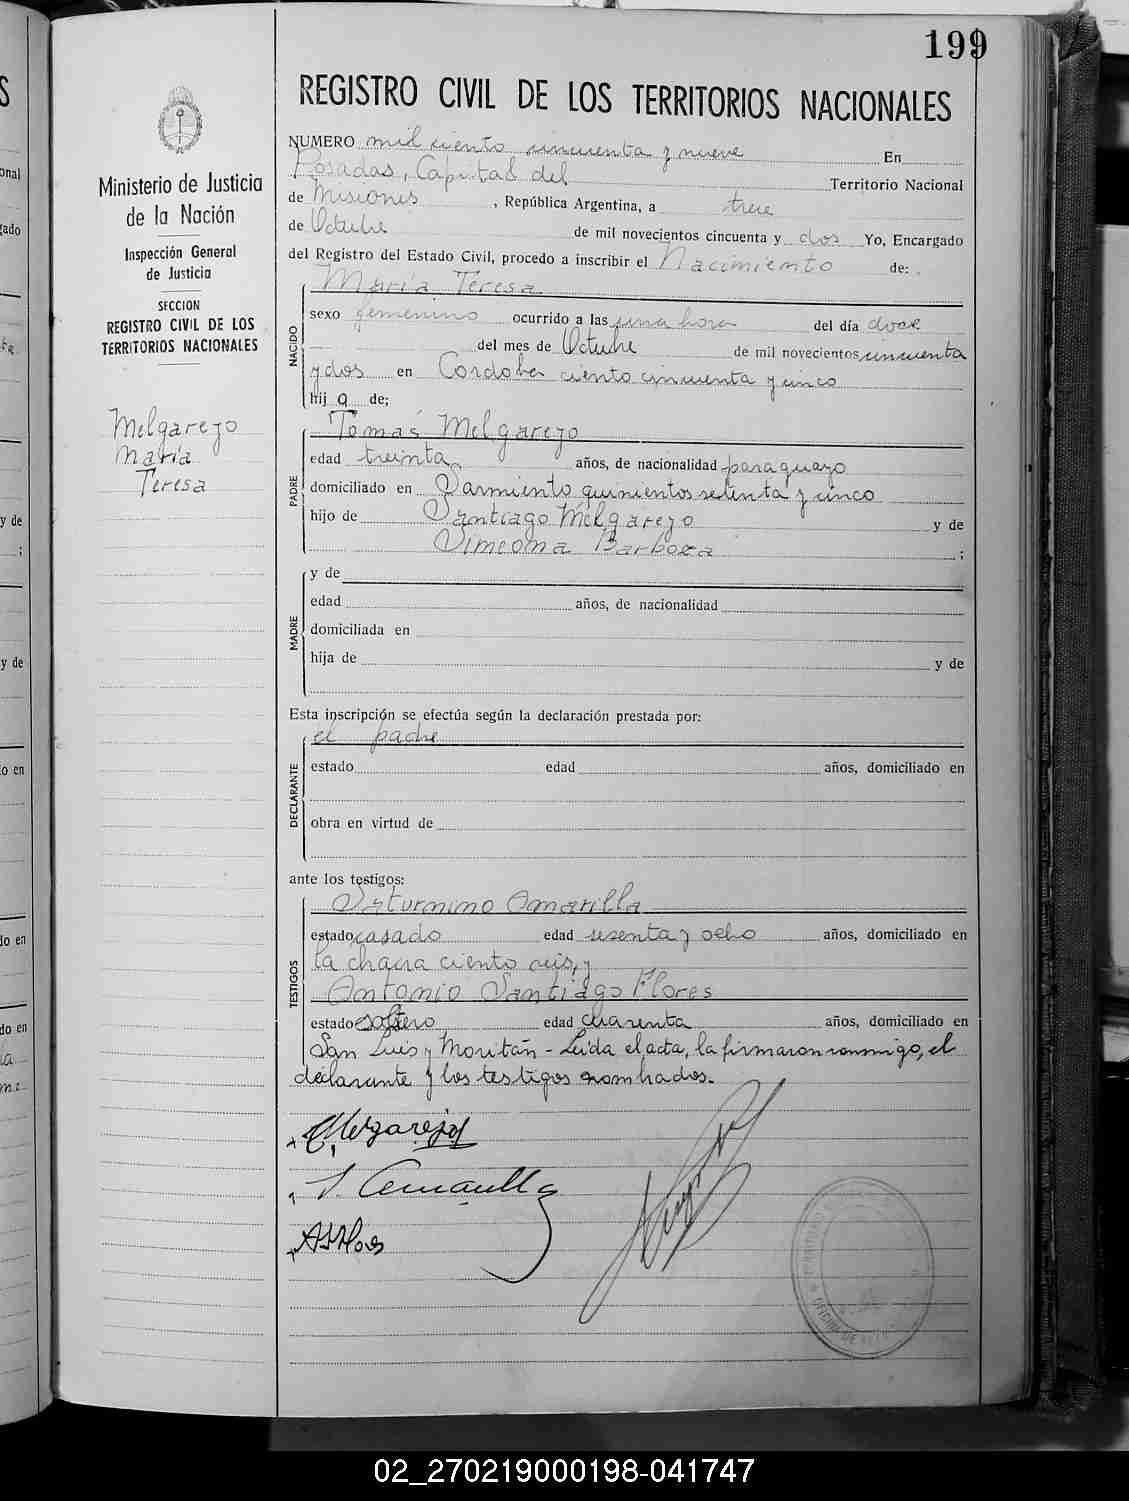 199
REGISTRO CIVIL DE LOS TERRITORIOS NACIONALES
Ministerio de Justicia
de la Nación
Inspección General
de Justicia
SECCION
REGISTRO CIVIL DE LOS
TERRITORIOS NACIONALES
Melgarejo
María
Teresa
NUMERO mil ciento cincuenta y nueve En
Posadas, Capital del Territorio Nacional
de Misiones, República Argentina, a trece
de Octubre de mil novecientos cincuenta y dos Yo, Encargado
del Registro del Estado Civil, procedo a inscribir el Nacimiento de:
NACIDO
María Teresa
sexo femenino ocurrido a las una hora del día doce
del mes de Octubre de mil novecientos cincuenta
y dos en Cordoba ciento cincuenta y cinco
hij a de;
PADRE
Tomás Melgarejo
edad treinta años, de nacionalidad paraguayo
domiciliado en Sarmiento quinientos setenta y cinco
hijo de Santiago Melgarejo y de
Simeona Barboza ;
MADRE
y de
edad años, de nacionalidad
domiciliada en
hija de y de
Esta inscripción se efectúa según la declaración prestada por:
DECLARANTE
el padre
estado edad años, domiciliado en
obra en virtud de
ante los testigos:
TESTIGOS
Saturnino Amarilla
estado casado edad sesenta y ocho años, domiciliado en
la chacra ciento seis, y
Antonio Santiago Flores
estado soltero edad cuarenta años, domiciliado en
San Luis y Moritán - Leída el acta, la firmaron conmigo, el
declarante y los testigos nombrados.
Melgarejo
S. Amarilla
ASFlores
02_270219000198-041747